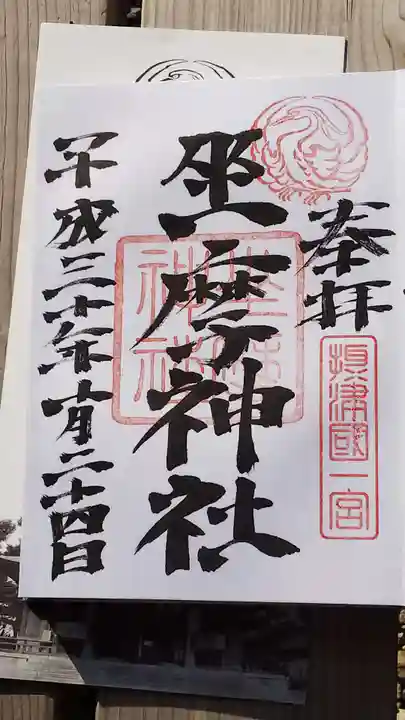 奉拝
摂津國一宮
坐摩神社
坐摩神社
平成三十年十月二十四日